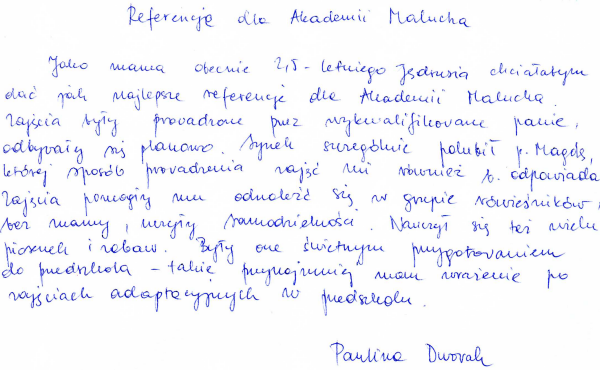 Referencje dla Akademii Malucha
Jako mama obecnie 2,5-letniego Jędrusia chciałabym
dać jak najlepsze referencje dla Akademii Malucha.
Zajęcia były prowadzone przez wykwalifikowane panie,
odbywały się planowo. Synek szczególnie polubił p. Magdę,
której sposób prowadzenia zajęć mi również b. odpowiada.
Zajęcia pomogły mu odnaleźć się w grupie rówieśników,
bez mamy, uczyły samodzielności. Nauczył się też wielu
piosenek i zabaw. Były one świetnym przygotowaniem
do przedszkola - takie przynajmniej mam wrażenie po
zajęciach adaptacyjnych w przedszkolu.
Paulina Dworak